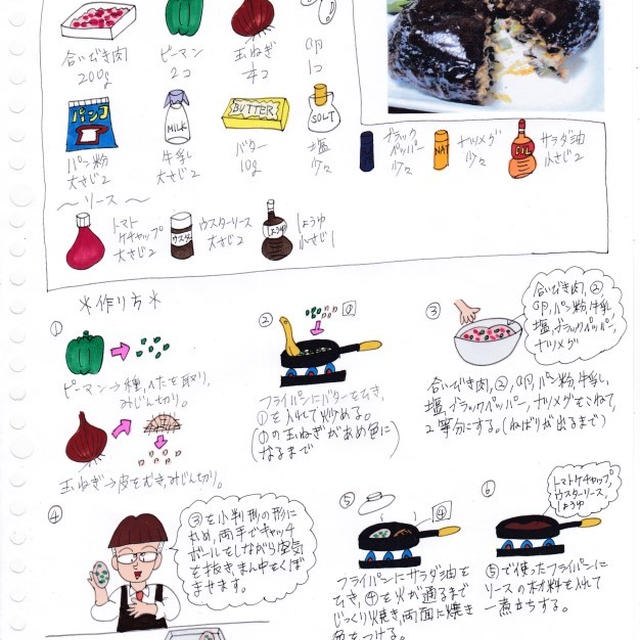 合いびき肉
200g
ピーマン
2コ
玉ねぎ
卵
1コ
パン粉
MILK
BUTTER
SOLT
パン粉
大さじ2
牛乳
大さじ2
バター
10g
塩
少々
ブラック
ペッパー
少々
NAT
ナツメグ
少々
OIL
サラダ油
小さじ2
〜ソース〜
トマト
ケチャップ
大さじ2
ウスター
ウスターソース
大さじ2
しょうゆ
しょうゆ
小さじ1
*作り方*
①
ピーマン→種、ヘタを取り、
みじん切り。
玉ねぎ→皮をむき、みじん切り。
②
①
フライパンにバターをひき、
①を入れて炒める。
(①の玉ねぎがあめ色に
なるまで)
③
合いびき肉、②
卵、パン粉、牛乳
塩、ブラックペッパー、
ナツメグ
合いびき肉、②、卵、パン粉、牛乳、
塩、ブラックペッパー、ナツメグをこねて、
2等分にする。(ねばりが出るまで)
④
③を小判形の形に
丸め、両手でキャッチ
ボールをしながら空気
を抜き、まん中をくぼ
ませます。
⑤
④
フライパンにサラダ油を
ひき、④を火が通るまで
じっくり焼き、両面に焼き
色をつける。
⑥
トマトケチャップ
ウスターソース、
しょうゆ
⑤で使ったフライパンに
ソースの材料を入れて
一煮立ちする。